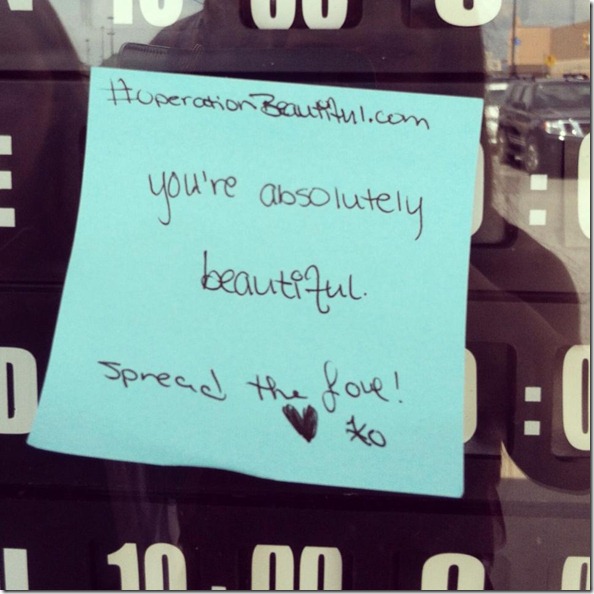 N 10:00 8
#operationBeautiful.com
you're absolutely
beautiful.
spread the love!
♥ xo
10:00